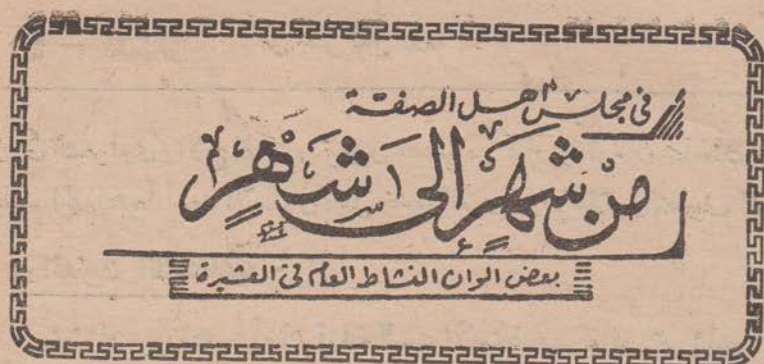 فى مجلس أهل الصفة
مِنْ شَهْرٍ إلى شَهْرٍ
بعض الوان النشاط العام فى العشيرة